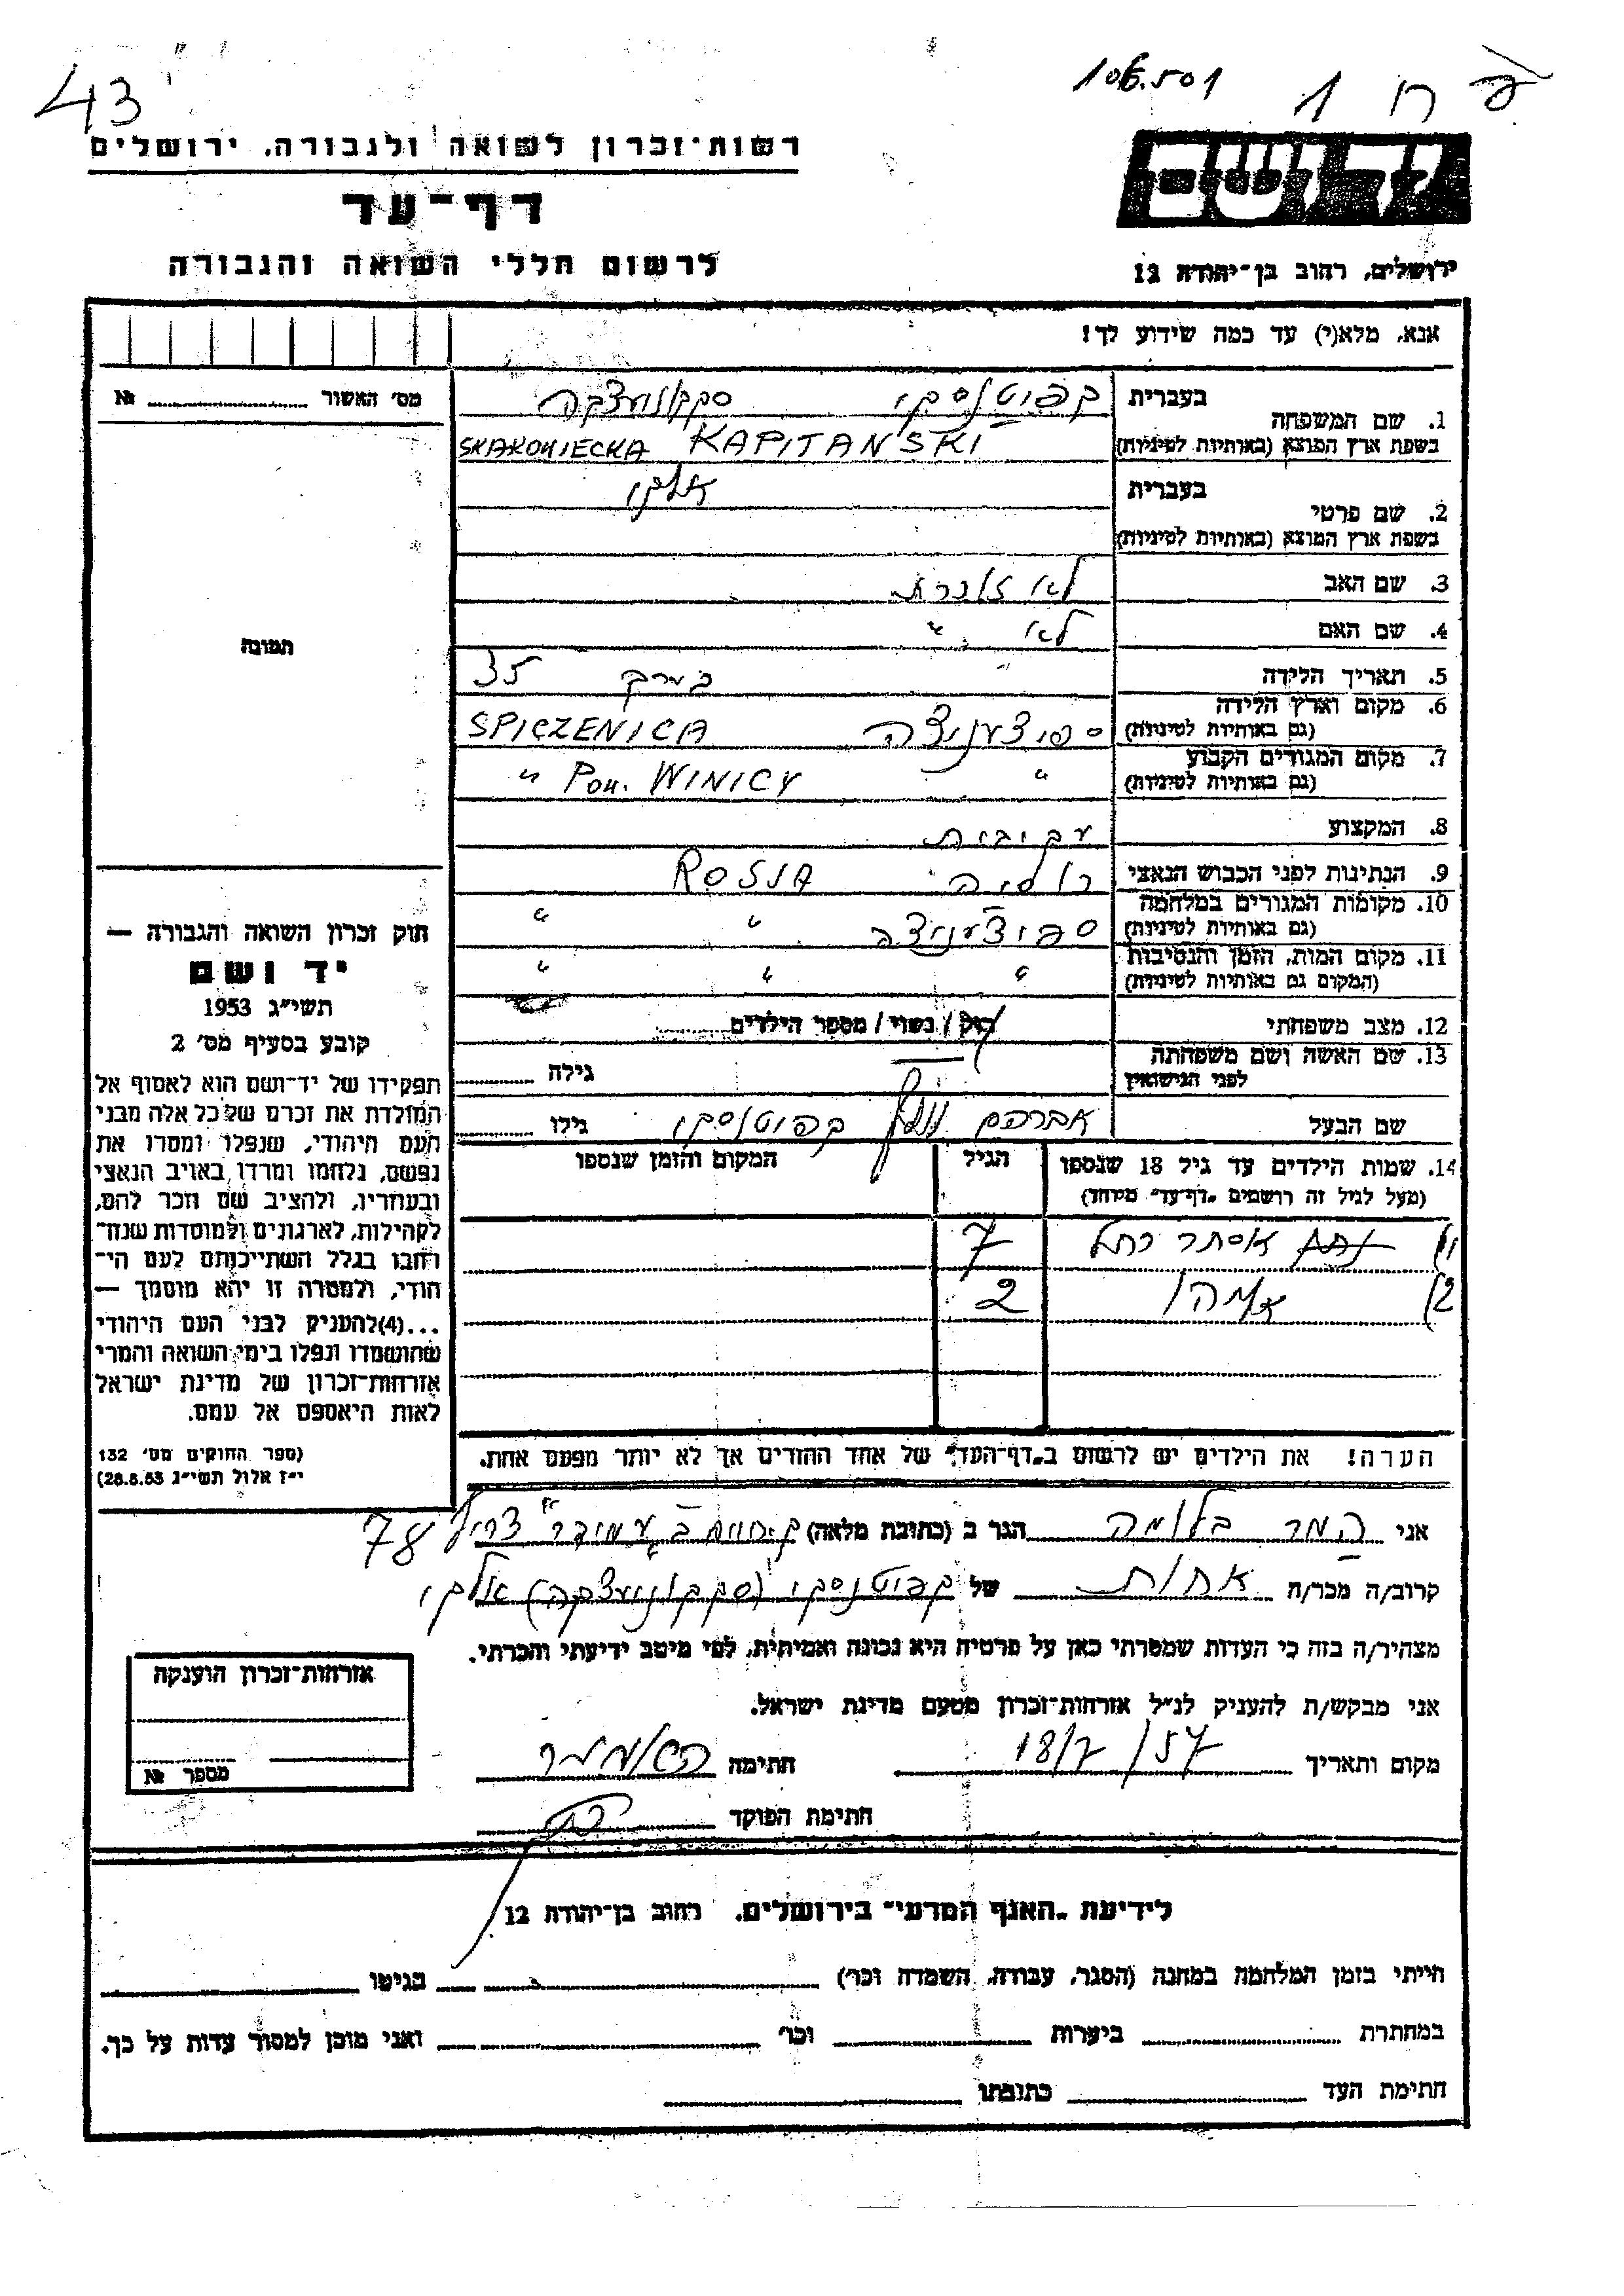 43
106.501
רשות־זכרון לשואה ולגבורה, ירושלים
דף־עד
לרשום חללי השואה והגבורה
ידושם
ירושלים, רחוב בן־יהודה 12
אנא, מלא(י) עד כמה שידוע לך!
מס' האשור № 
תמונה
חוק זכרון השואה והגבורה —
יד ושם
תשי״ג 1953
קובע בסעיף מס' 2
תפקידו של יד־ושם הוא לאסוף אל
המולדת את זכרם של כל אלה מבני
העם היהודי, שנפלו ומסרו את
נפשם, נלחמו ומרדו באויב הנאצי
ובעוזריו, ולהציב שם וזכר להם,
לקהילות, לארגונים ולמוסדות שנח־
רבו בגלל השתייכותם לעם הי־
הודי, ולמטרה זו יהא מוסמך —
...(4)להעניק לבני העם היהודי
שהושמדו ונפלו בימי השואה והמרי
אזרחות־זכרון של מדינת ישראל
לאות היאספם אל עמם.
(ספר החוקים מס' 132
י״ז אלול תשי״ג 28.8.53)
1. שם המשפחה בעברית קפיטנסקי סקקוניעצקה
בשפת ארץ המוצא (באותיות לטיניות) KAPITANSKI SKAKONIECKA
2. שם פרטי בעברית אלקי
בשפת ארץ המוצא (באותיות לטיניות)
3. שם האב לא זוכרת
4. שם האם לא "
5. תאריך הלידה בערך 35
6. מקום וארץ הלידה (גם באותיות לטיניות) ספיצעניצה SPICZENICA
7. מקום המגורים הקבוע (גם באותיות לטיניות) " " Pow. WINICY
8. המקצוע עקיבות
9. הנתינות לפני הכבוש הנאצי רוסיה ROSJA
10. מקומות המגורים במלחמה (גם באותיות לטיניות) ספיצעניצה " "
11. מקום המות, הזמן והנסיבות (המקום גם באותיות לטיניות) " " "
12. מצב משפחתי רוק / נשוי / מספר הילדים
13. שם האשה ושם משפחתה לפני הנישואין גילה
שם הבעל אברהם קפיטנסקי גילו
14. שמות הילדים עד גיל 18 שנספו הגיל המקום והזמן שנספו
(מעל לגיל זה רושמים „דף־עד" מיוחד)
1) אסתר רחל 7
2) 2
הערה! את הילדים יש לרשום ב„דף־העד" של אחד ההורים אך לא יותר מפעם אחת.
אני המר בלומה הגר ב (כתובת מלאה) עמידר צריף 78
קרוב/ה מכר/ה אחות של קפיטנסקי (סקקוניעצקה) אלקי
מצהיר/ה בזה כי העדות שמסרתי כאן על פרטיה היא נכונה ואמיתית, לפי מיטב ידיעתי והכרתי.
אני מבקש/ת להעניק לנ״ל אזרחות־זכרון מטעם מדינת ישראל.
מקום ותאריך 18/7/57 חתימה
חתימת הפוקד
אזרחות־זכרון הוענקה
מספר №
לידיעת „האגף המדעי" בירושלים, רחוב בן־יהודה 12
הייתי בזמן המלחמה במחנה (הסגר, עבודה, השמדה וכר') בגיטו
במחתרת ביערות וכר' ואני מוכן למסור עדות על כך.
חתימת העד כתובתו